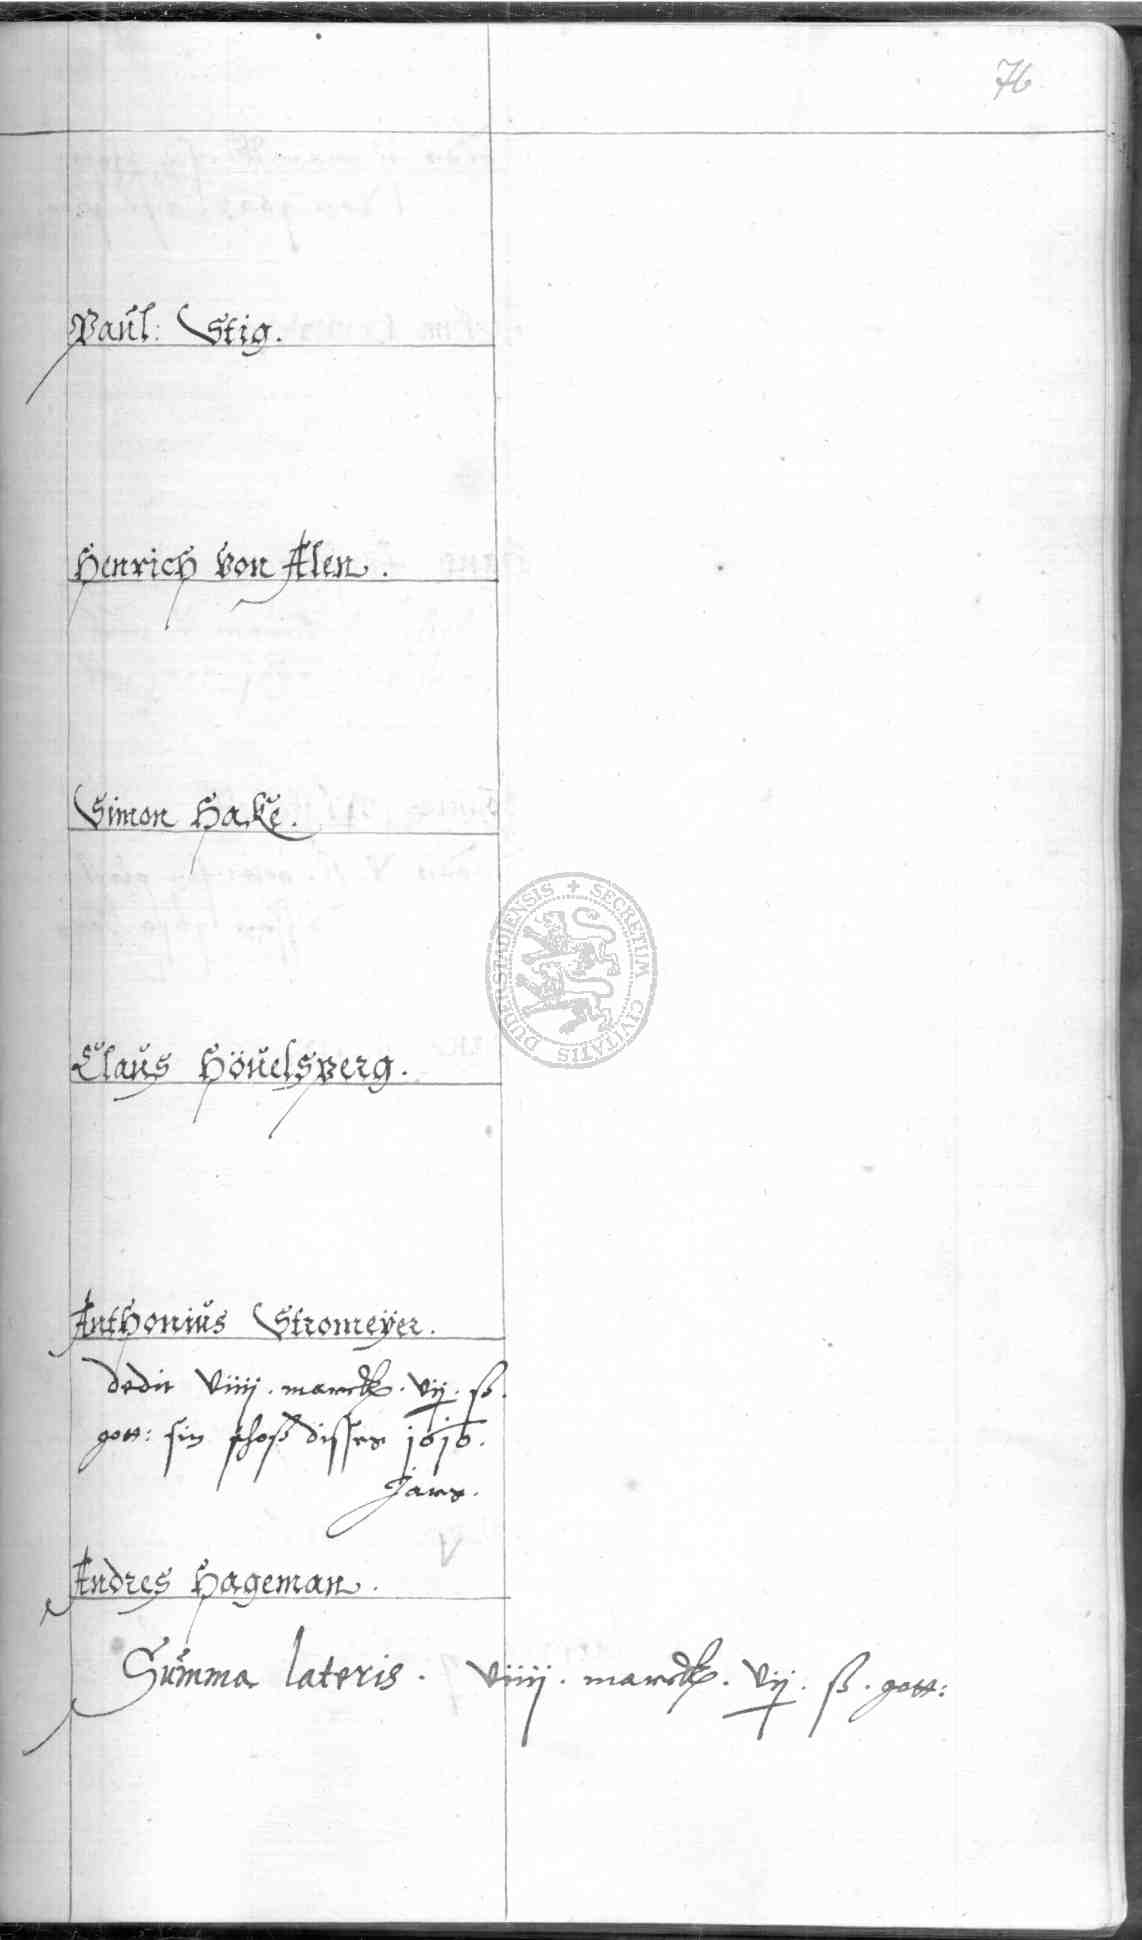 76
Paul: Stig.
Henrich von Alen.
Simon Hake.
Claus Höuelsperg.
Anthonius Stromeÿer.
dedit viiij. marck. vij. ß.
gott: sin schoß disses 1616.
Jars.
Andres Hageman.
Summa lateris. viiij. marck. vij. ß. gott:
SECRETUM CIVITATIS DUDERSTADIENSIS